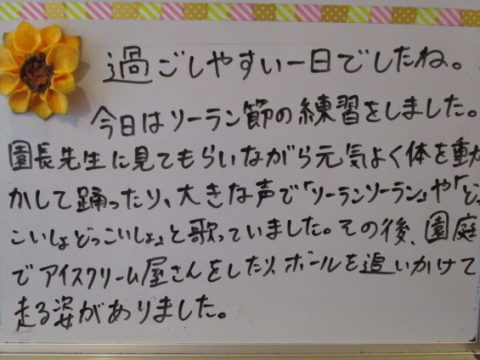 過ごしやすい一日でしたね。
今日はソーラン節の練習をしました。
園長先生に見てもらいながら元気よく体を動
かして踊ったり、大きな声で「ソーランソーラン」や「どっ
こいしょどっこいしょ」と歌っていました。その後、園庭
でアイスクリーム屋さんをしたり、ボールを追いかけて
走る姿がありました。